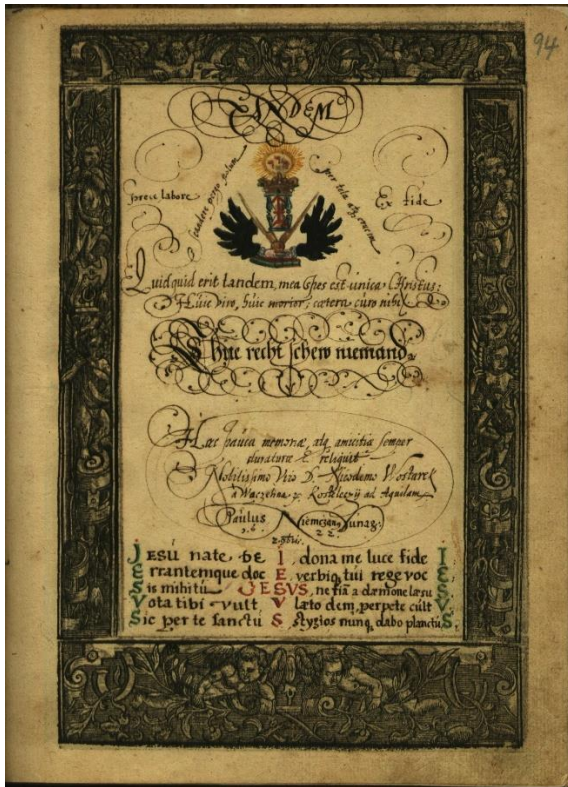 94
TANDEM
prece labore
Ex fide
Quidquid erit tandem, mea spes est unica Christus:
Huic vivo, huic morior; cætera curo nihil
Thue recht schew niemand.
Hæc pauca memoriæ, atq amicitiæ semper
duraturæ E reliquit
Nobilissimo Viro D. Nicodemo
ad Aquilam
Paulus
JESU nate DE I, dona me luce fide I
Errantemque doc E verbiq tui rege voc E
Sis mihi tu JESVS, ne fia a dæmone læsu S
Vota tibi vult V læto dem, perpete cult V
Sic per te sanctu S stygios nunq dabo planctu S.